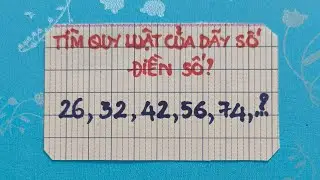 TÌM QUY LUẬT CỦA DÃY SỐ
ĐIỀN SỐ?
26, 32, 42, 56, 74, ...?